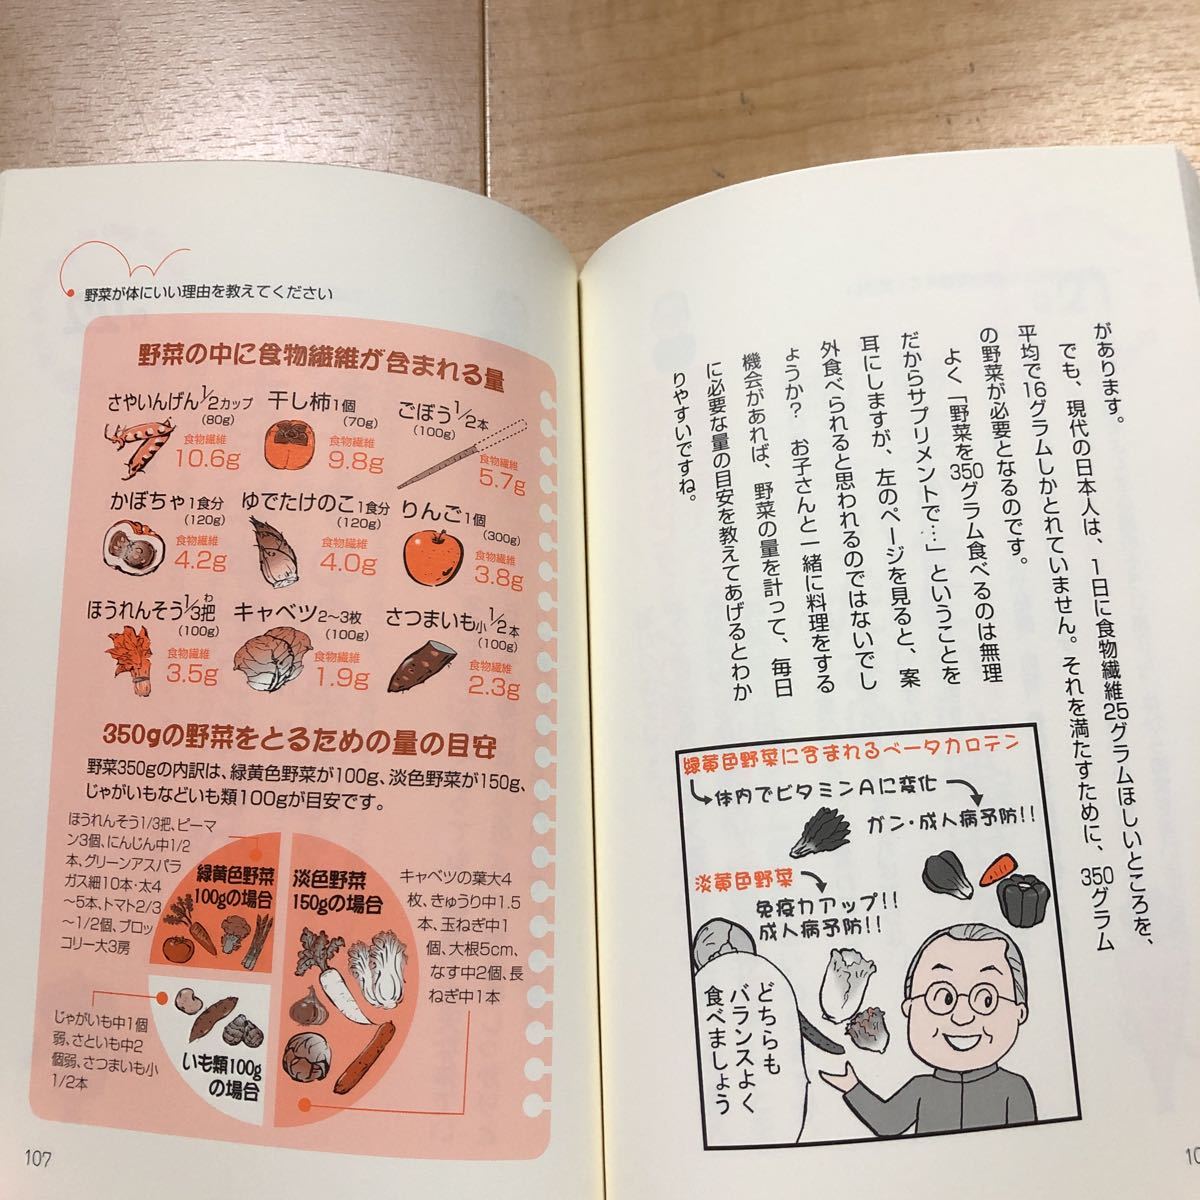 があります。
でも、現代の日本人は、1日に食物繊維25グラムほしいところを、
平均で16グラムしかとれていません。それを満たすために、350グラム
の野菜が必要となるのです。
よく「野菜を350グラム食べるのは無理
だからサプリメントで…」ということを
耳にしますが、左のページを見ると、案
外食べられると思われるのではないでし
ょうか? お子さんと一緒に料理をする
機会があれば、野菜の量を計って、毎日
に必要な量の目安を教えてあげるとわか
りやすいですね。
緑黄色野菜に含まれるベータカロテン
体内でビタミンAに変化
ガン・成人病予防!!
淡黄色野菜
免疫力アップ!!
成人病予防!!
どちらも
バランスよく
食べましょう
10
野菜が体にいい理由を教えてください
野菜の中に食物繊維が含まれる量
さやいんげん1/2カップ
(80g)
食物繊維
10.6g
干し柿1個
(70g)
食物繊維
9.8g
ごぼう1/2本
(100g)
食物繊維
5.7g
かぼちゃ1食分
(120g)
食物繊維
4.2g
ゆでたけのこ1食分
(120g)
食物繊維
4.0g
りんご1個
(300g)
食物繊維
3.8g
ほうれんそう1/3把
わ
(100g)
食物繊維
3.5g
キャベツ2〜3枚
(100g)
食物繊維
1.9g
さつまいも小1/2本
(100g)
食物繊維
2.3g
350gの野菜をとるための量の目安
野菜350gの内訳は、緑黄色野菜が100g、淡色野菜が150g、
じゃがいもなどいも類100gが目安です。
ほうれんそう1/3把、ピーマ
ン3個、にんじん中1/2
本、グリーンアスパラ
ガス細10本・太4
〜5本、トマト2/3
〜1/2個、ブロッ
コリー大3房
緑黄色野菜
100gの場合
淡色野菜
150gの場合
キャベツの葉大4
枚、きゅうり中1.5
本、玉ねぎ中1
個、大根5cm、
なす中2個、長
ねぎ中1本
じゃがいも中1個
弱、さといも中2
個弱、さつまいも小
1/2本
いも類100g
の場合
107